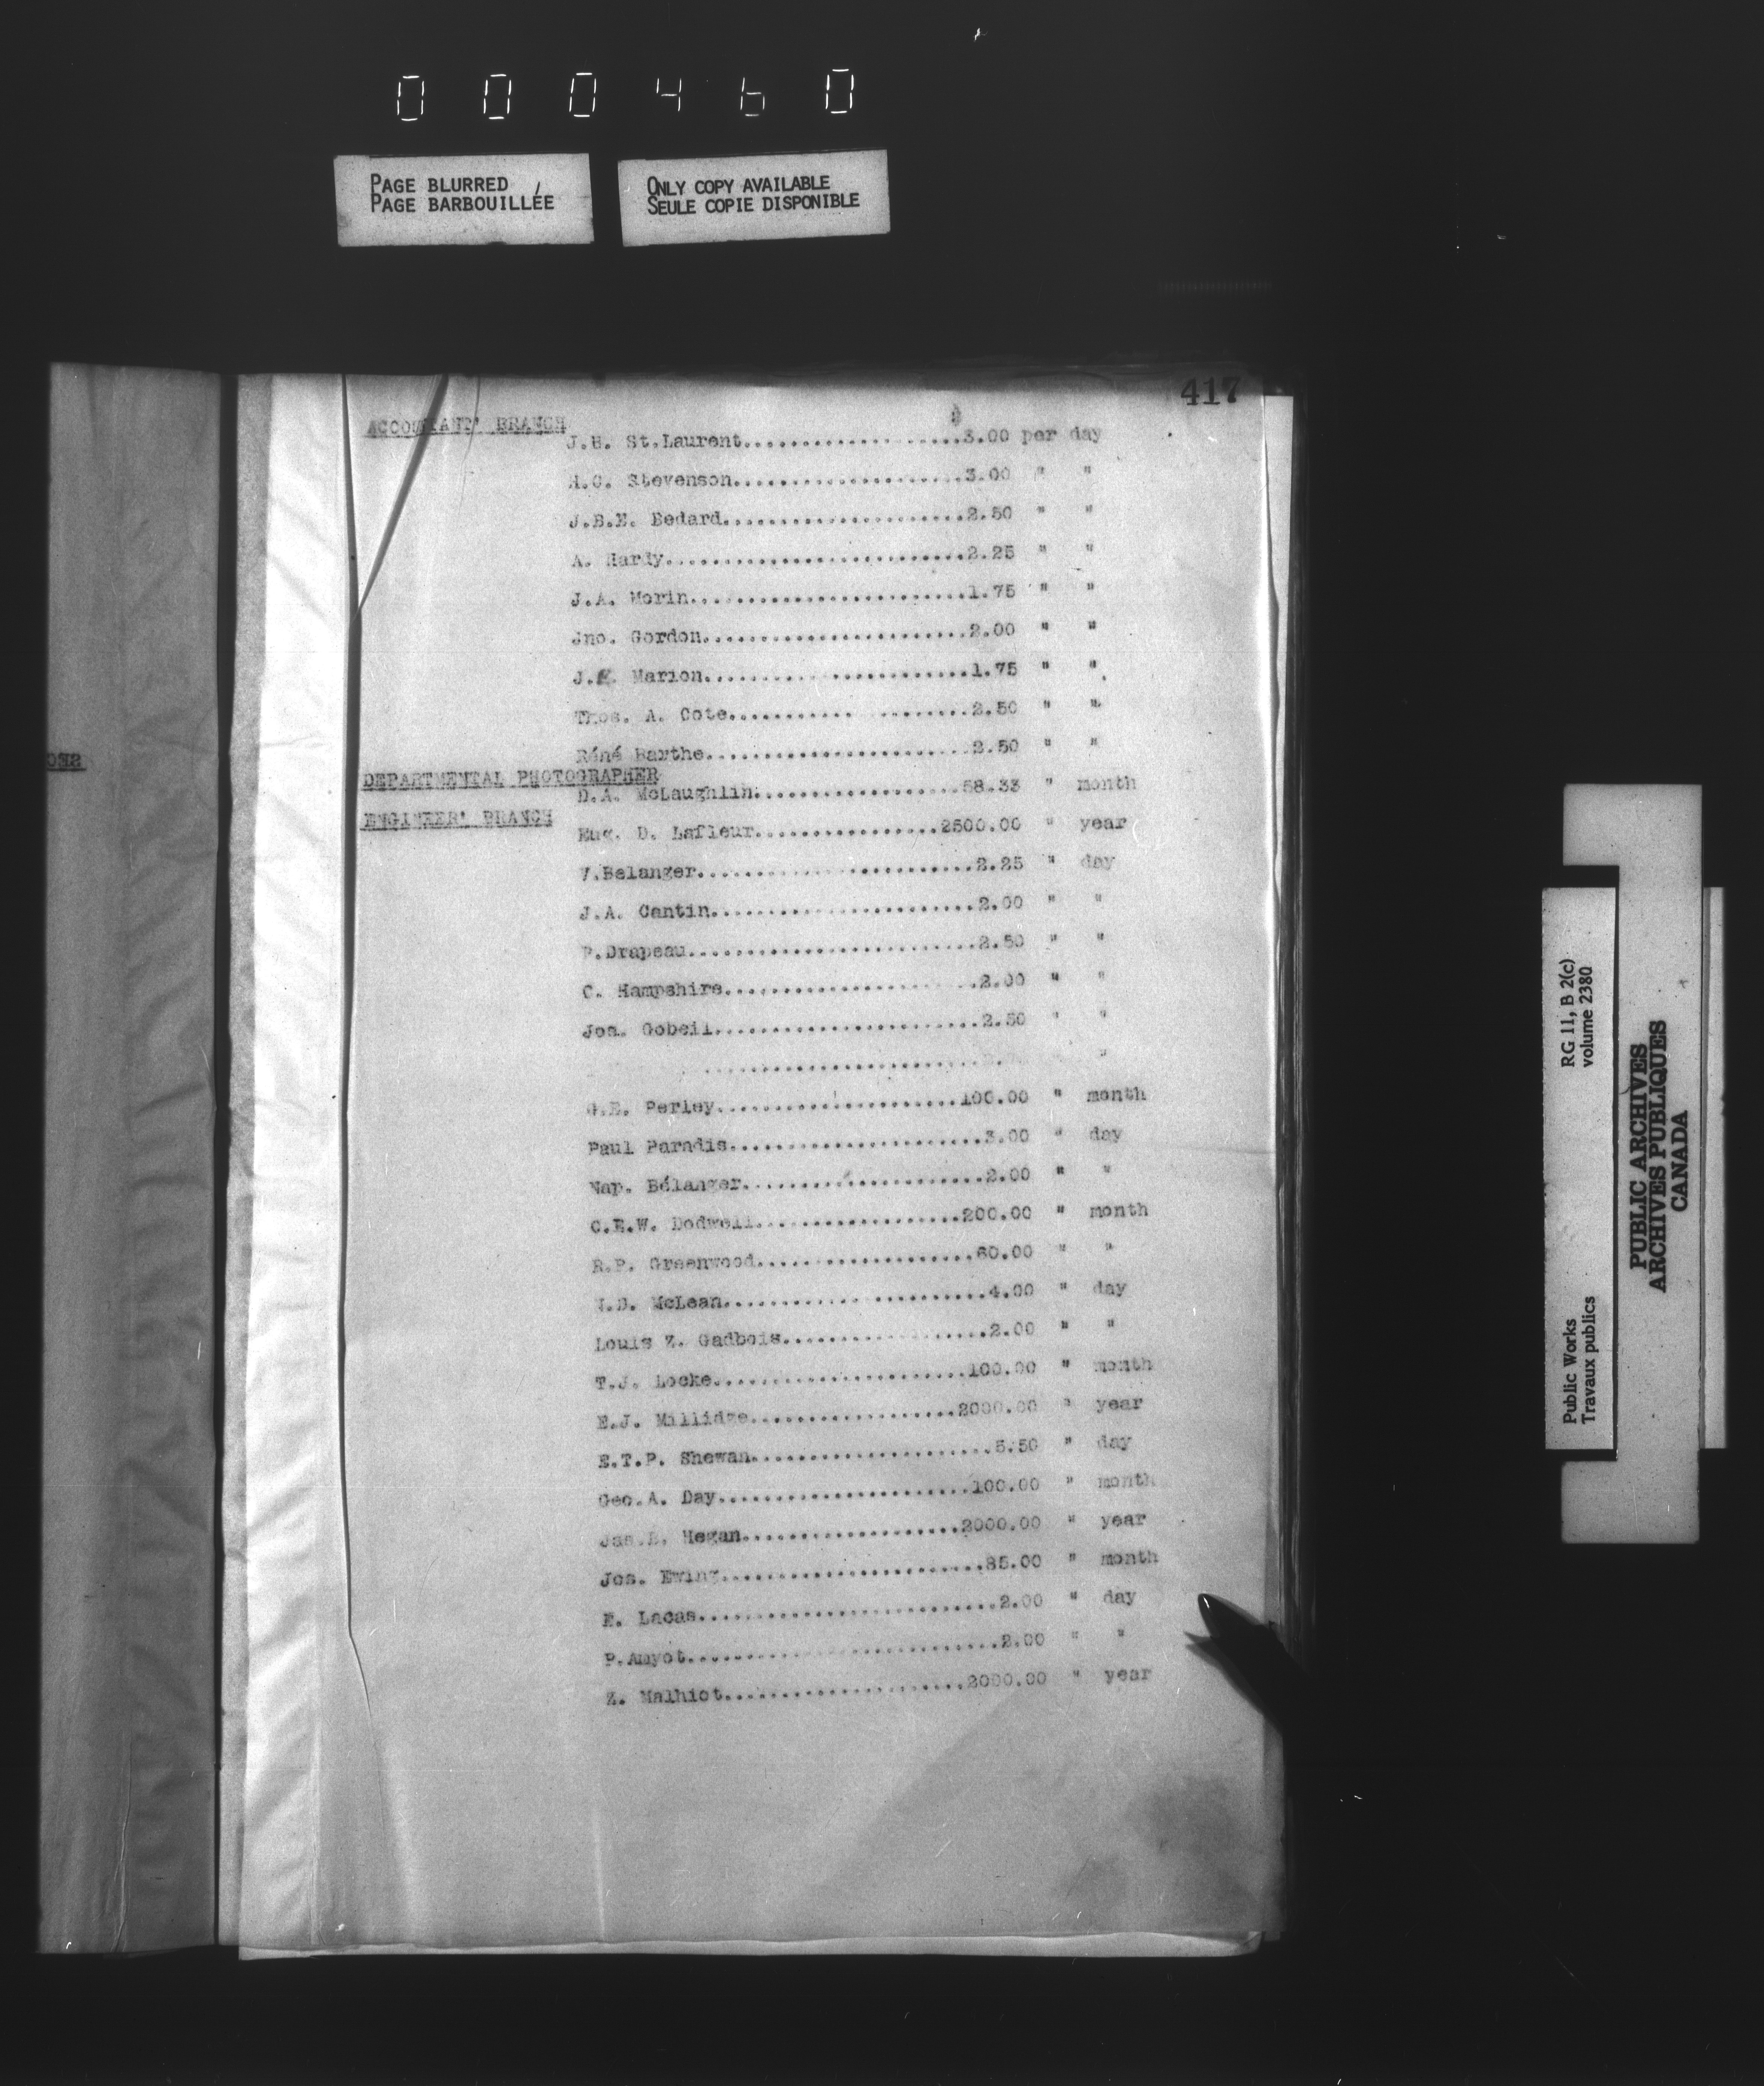 000460
PAGE BLURRED
PAGE BARBOUILLÉE
ONLY COPY AVAILABLE
SEULE COPIE DISPONIBLE
417
ACCOUNTANT' BRANCH
J.H. St.Laurent.....................3.00 per day
H.C. Stevenson......................3.00 " "
J.B.E. Bedard.......................2.50 " "
A. Hardy............................2.25 " "
J.A. Morin..........................1.75 " "
Jno. Gordon.........................2.00 " "
J. Marion.........................1.75 " "
Thos. A. Cote.......................2.50 " "
Réné Barthe.........................2.50 " "
DEPARTMENTAL PHOTOGRAPHER
D.A. McLaughlin....................58.33 " month
ENGINEER' BRANCH
Eug. D. Lafleur..................2500.00 " year
V.Belanger..........................2.25 " day
J.A. Cantin.........................2.00 " "
P.Drapeau...........................2.50 " "
C. Hampshire........................2.00 " "
Jos. Gobeil.........................2.50 " "
"
G.E. Perley.......................100.00 " month
Paul Paradis........................3.00 " day
Nap. Bélanger.......................2.00 " "
C.E.W. Dodwell....................200.00 " month
R.P. Greenwood.....................60.00 " "
N.D. McLean.........................4.00 " day
Louis Z. Gadbois....................2.00 " "
T.J. Locke........................100.00 " month
E.J. Millidge....................2000.00 " year
E.T.P. Shewan.......................5.50 " day
Geo.A. Day........................100.00 " month
Jas. Hegan.....................2000.00 " year
Jos. Ewing.........................85.00 " month
E. Lacas............................2.00 " day
P.Amyot.............................2.00 " "
Z. Malhiot.......................2000.00 " year
RG 11, B 2(c)
volume 2380
Public Works
Travaux publics
PUBLIC ARCHIVES
ARCHIVES PUBLIQUES
CANADA